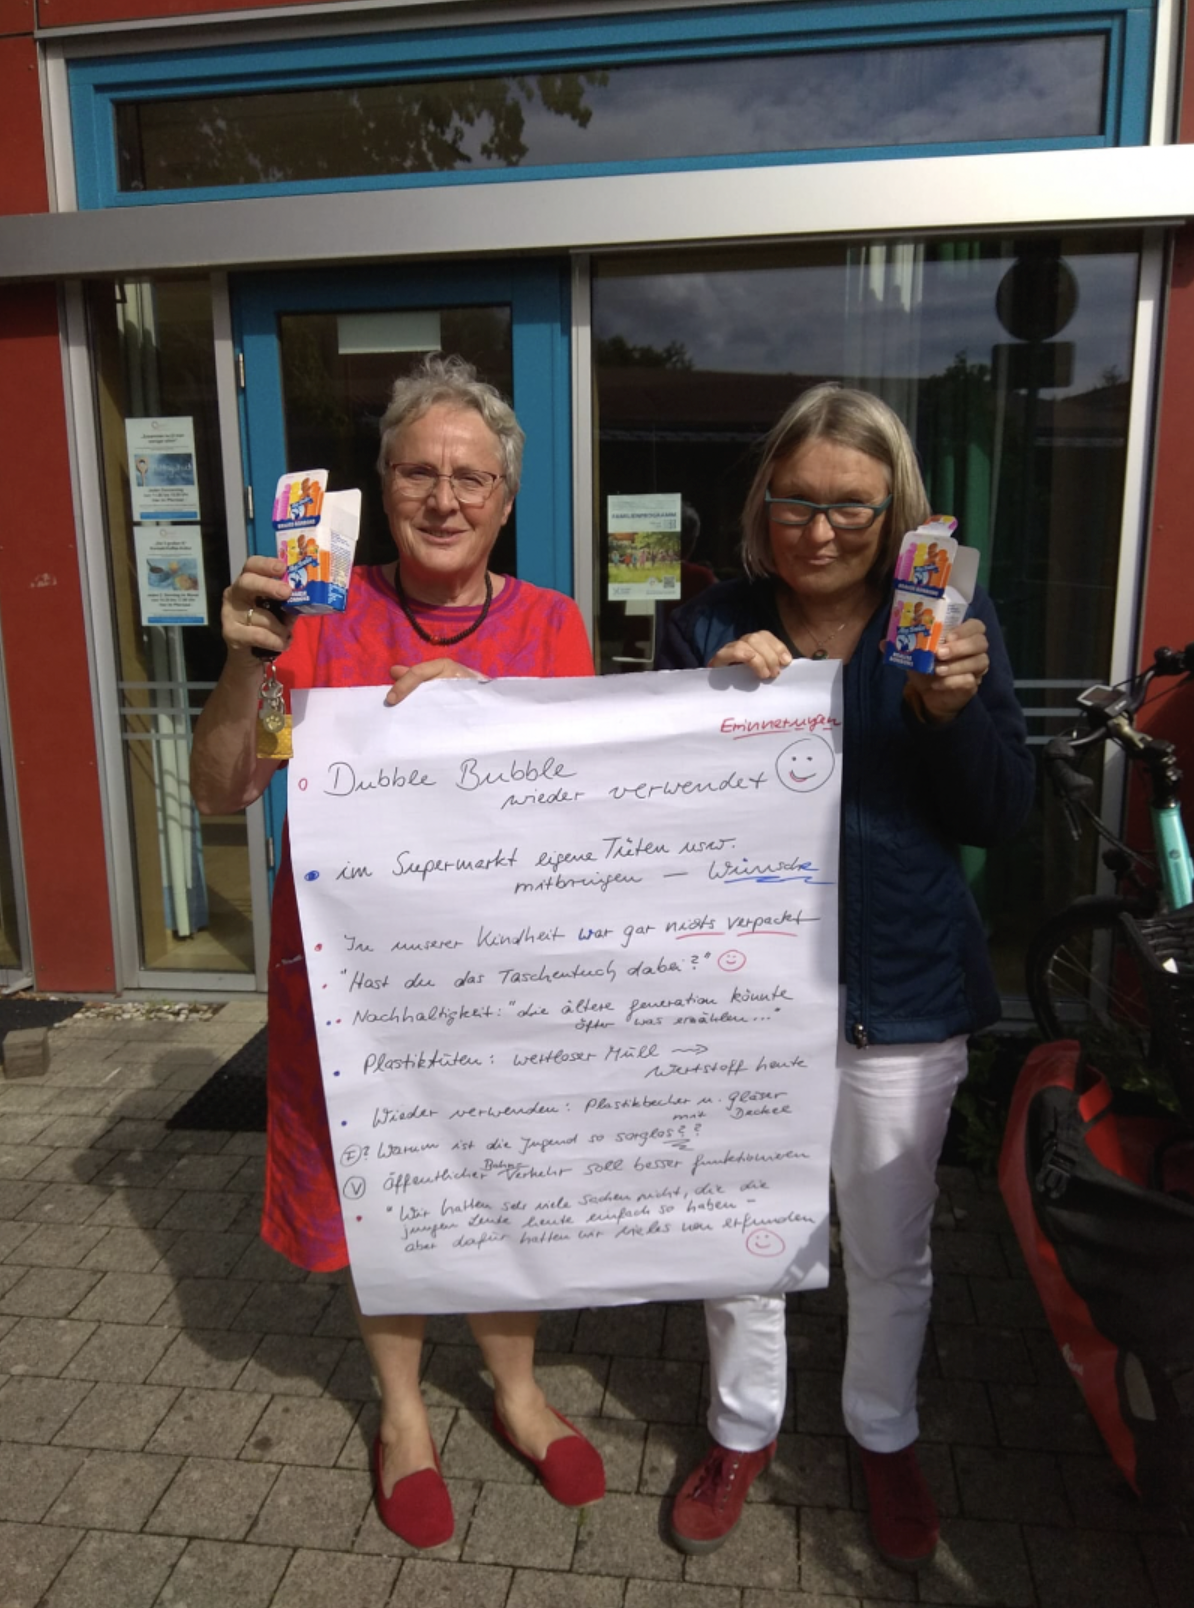 FAMILIENPROGRAMM
Erinnerungen
Dubble Bubble
wieder verwendet
im Supermarkt eigene Tüten usw.
mitbringen — Wünsche
In unserer Kindheit war gar nichts verpackt
"Hast du das Taschentuch dabei?"
Nachhaltigkeit: "die ältere generation könnte
öfter was erzählen..."
Plastiktüten: wertloser Müll →
Wertstoff heute
Wieder verwenden: Plastikbecher u. gläser
mit Deckel
? Warum ist die Jugend so sorglos??
Bahn
V öffentlicher Verkehr soll besser funktionieren
"Wir hatten sehr viele Sachen nicht, die die
jungen Leute heute einfach so haben -
aber dafür hatten wir vieles neu erfunden